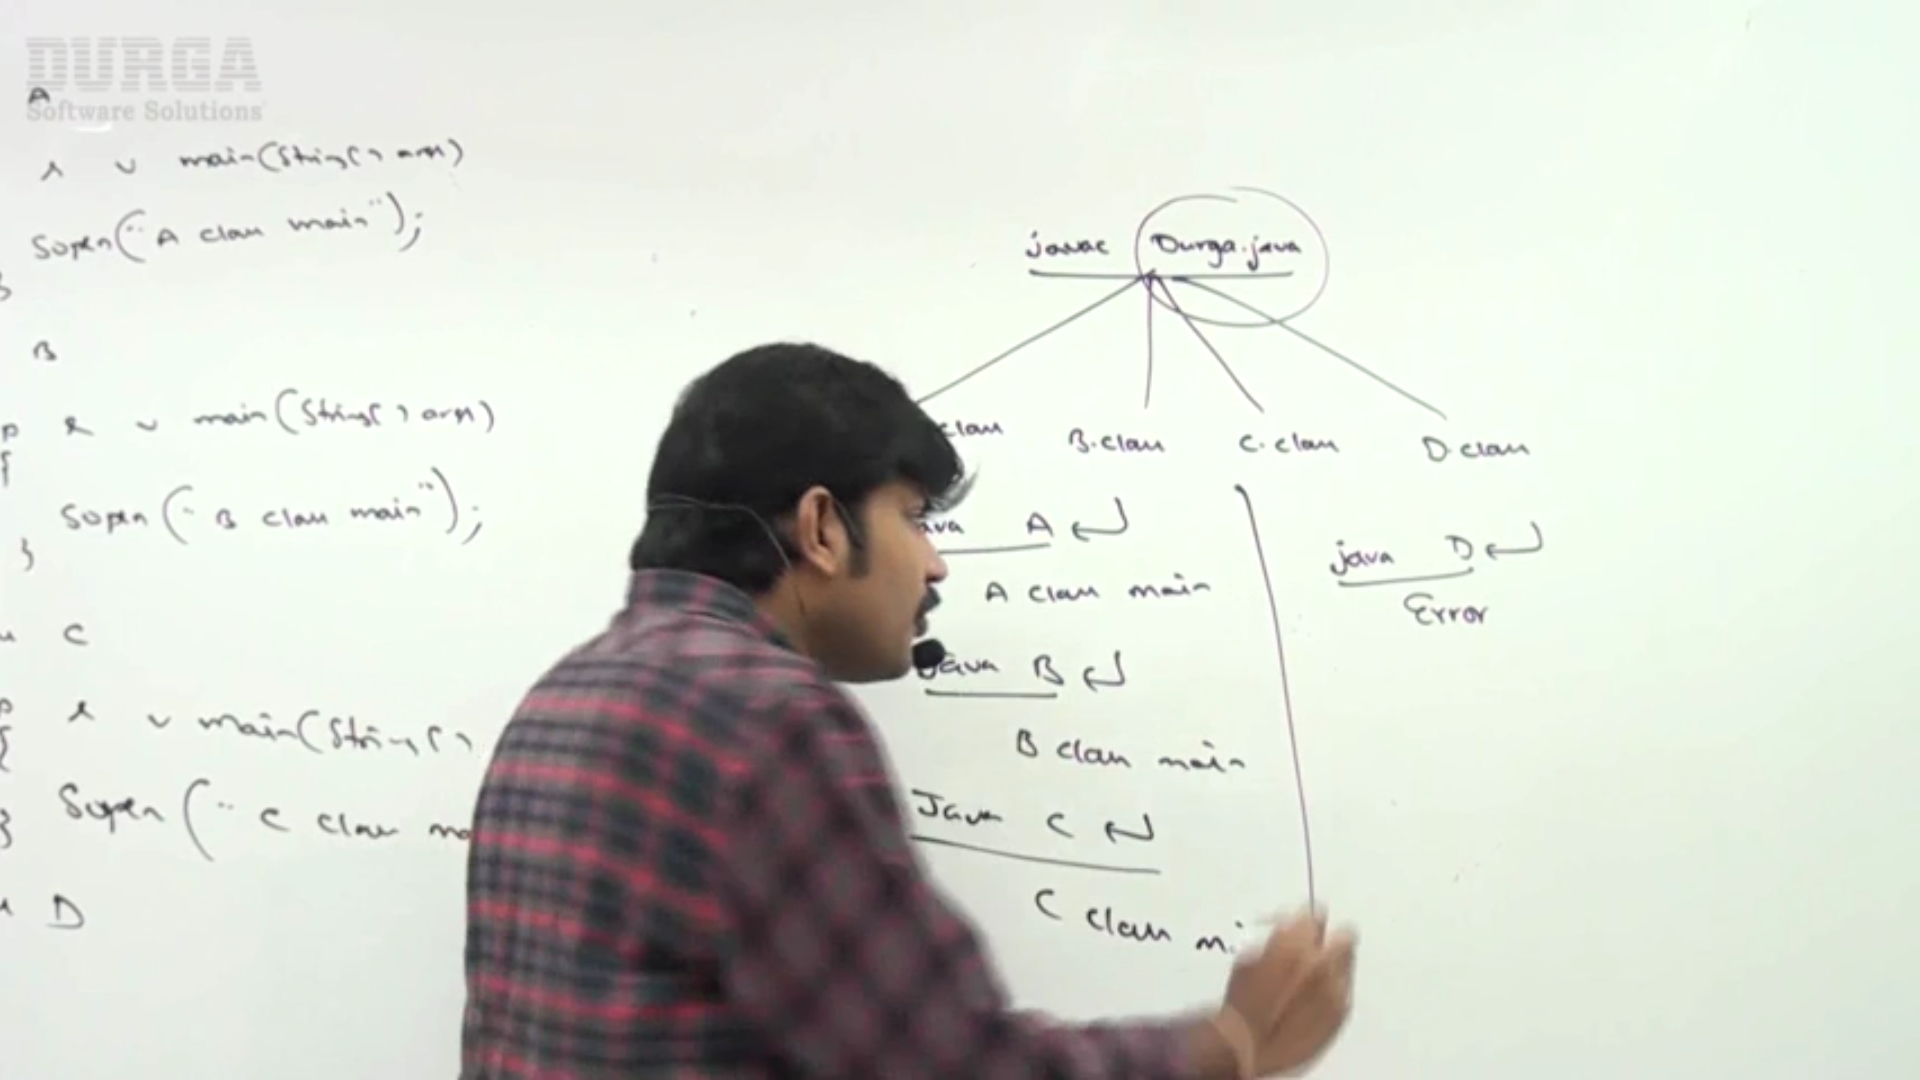 DURGA
Software Solutions
A
v main(String[] args)
Sopln("A class main");
}
B
p s v main(String[] args)
{
Sopln("B class main");
}
C
p s v main(String[]
{
Sopln("C class
}
D
javac Durga.java
class B.class C.class D.class
A ↵
A class main
java B ↵
B class main
Java C ↵
C class
java D ↵
Error